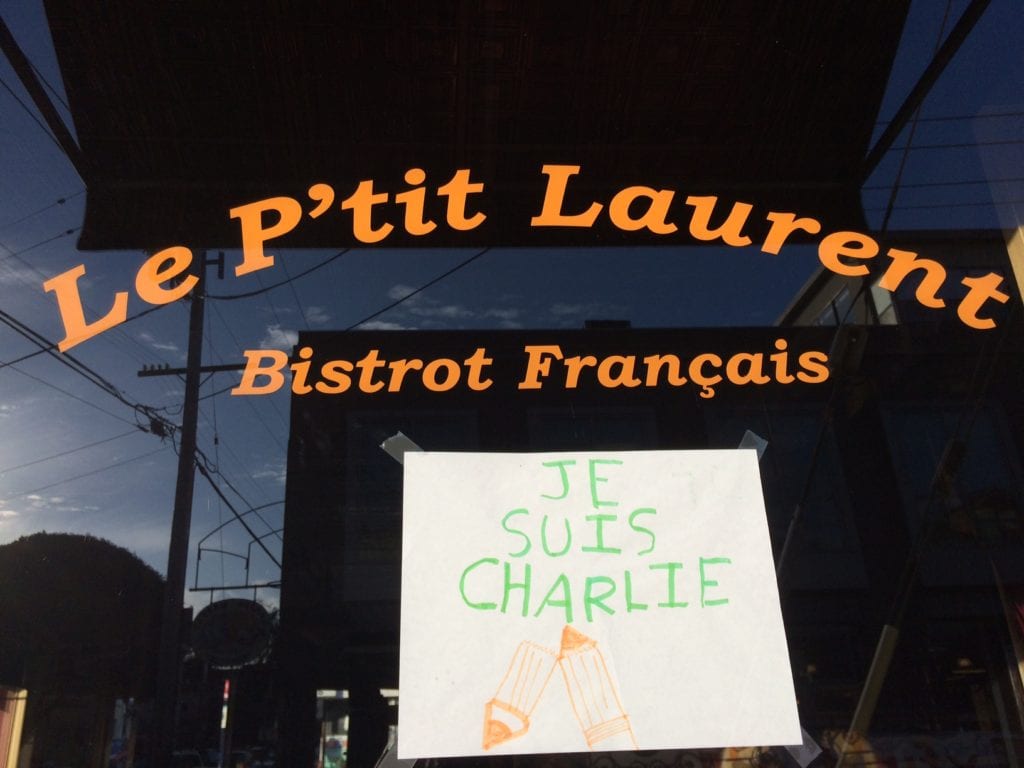 Le P'tit Laurent
Bistrot Français
JE
SUIS
CHARLIE